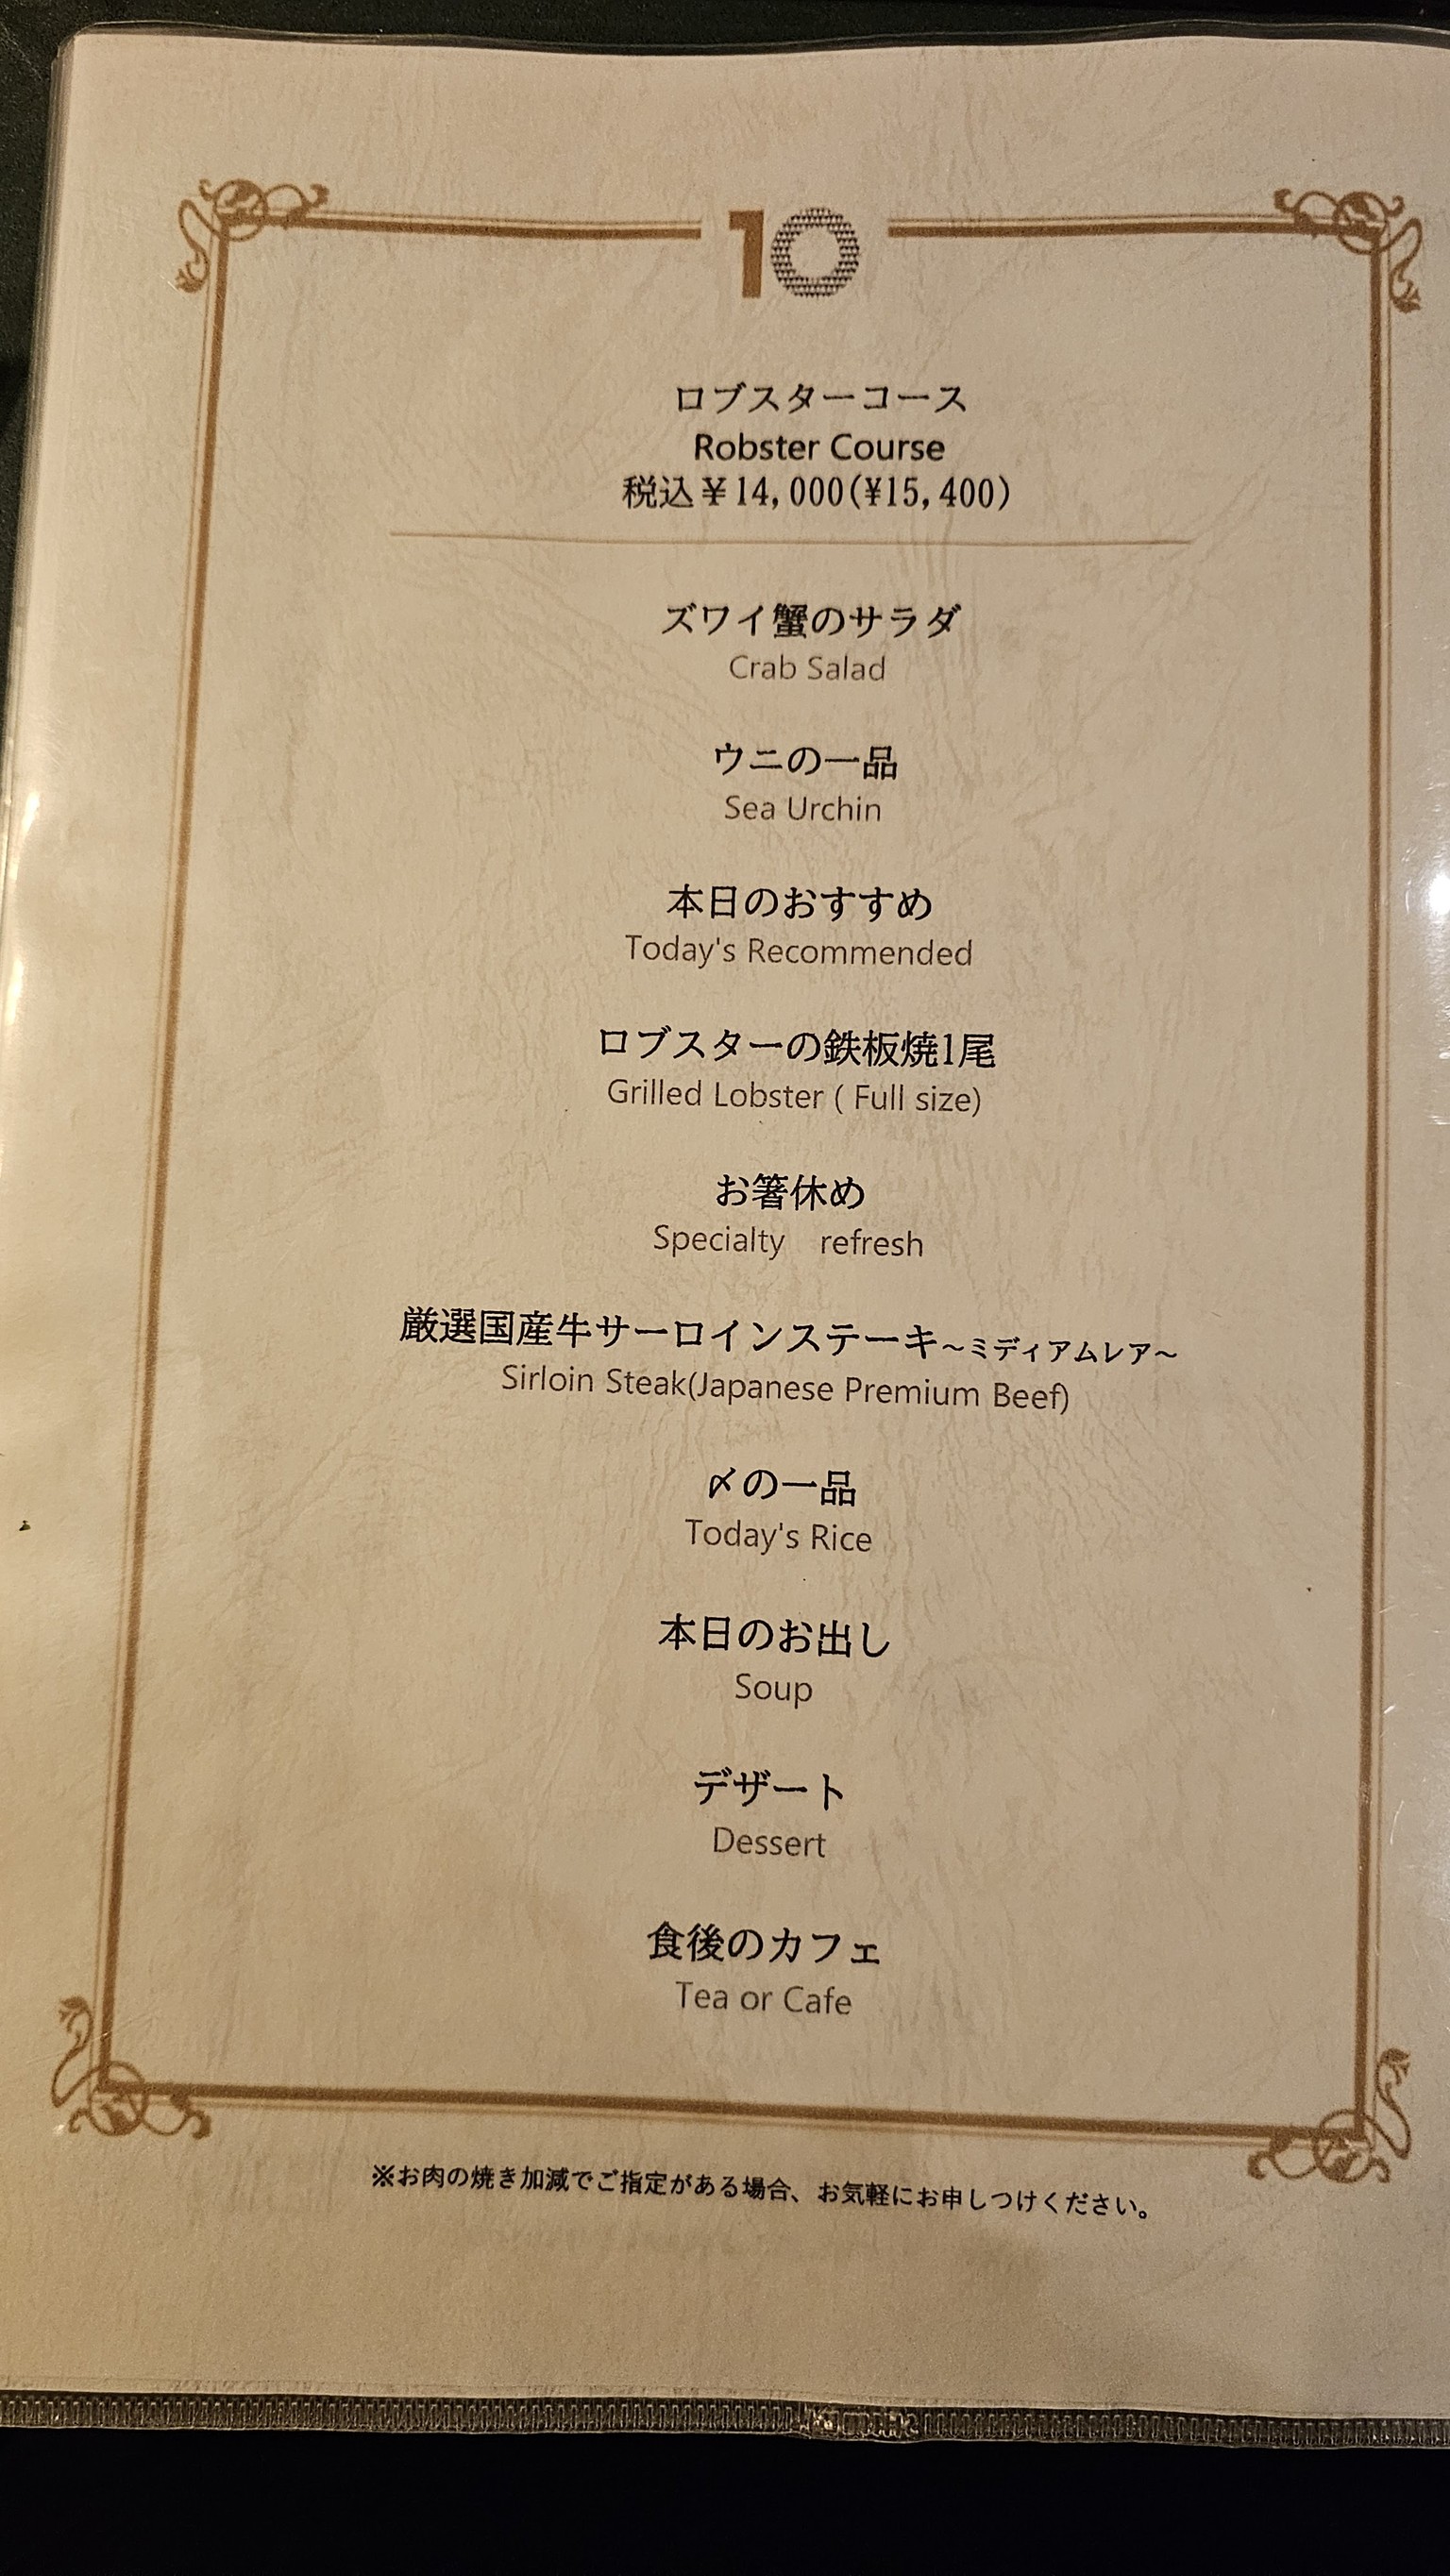 10
ロブスターコース
Robster Course
税込￥14,000(¥15,400)
ズワイ蟹のサラダ
Crab Salad
ウニの一品
Sea Urchin
本日のおすすめ
Today's Recommended
ロブスターの鉄板焼1尾
Grilled Lobster ( Full size)
お箸休め
Specialty　refresh
厳選国産牛サーロインステーキ~ミディアムレア~
Sirloin Steak(Japanese Premium Beef)
〆の一品
Today's Rice
本日のお出し
Soup
デザート
Dessert
食後のカフェ
Tea or Cafe
※お肉の焼き加減でご指定がある場合、お気軽にお申しつけください。